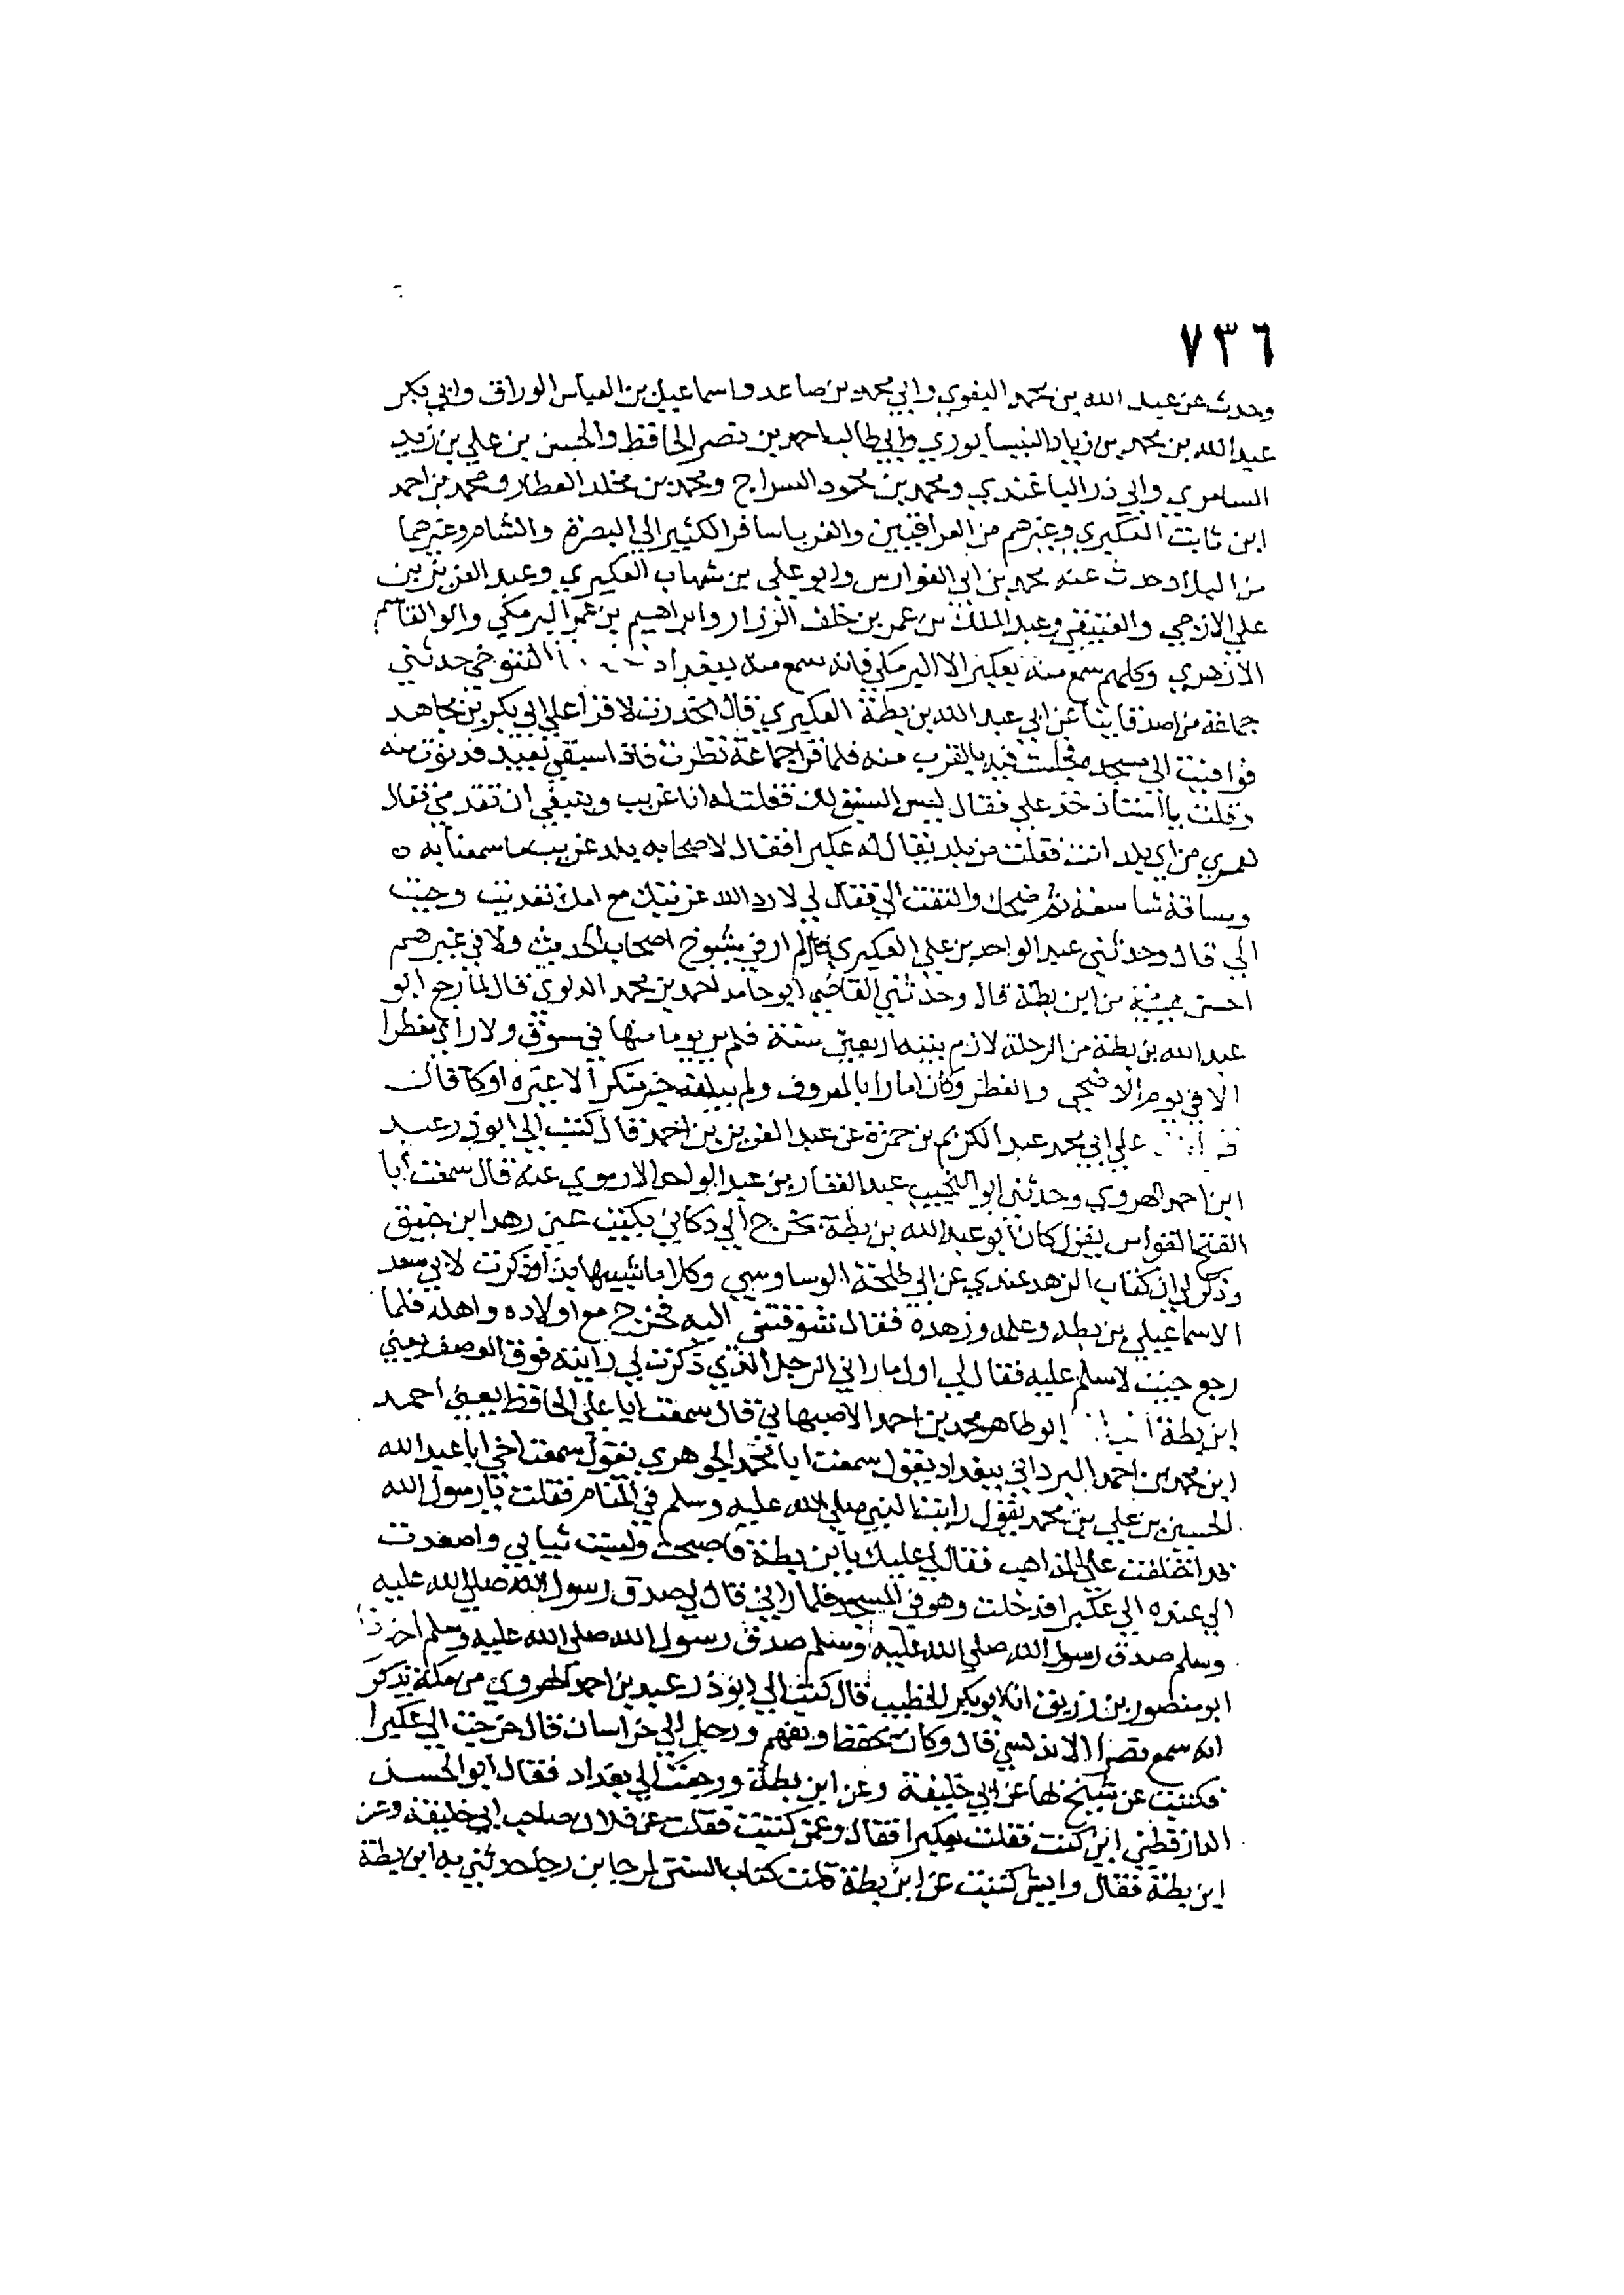 ٧٣٦
وحدث عن عبد الله بن محمد البغوي وابي محمد بن صاعد واسماعيل بن العباس الوراق وابي بكر
عبد الله بن محمد بن زياد النيسابوري وابي طالب احمد بن نصر الحافظ والحسن بن علي بن زيد
السامري وابي ذر الباغندي ومحمد بن محمود السراج ومحمد بن مخلد العطار ومحمد بن احمد
ابن ثابت العكبري وغيرهم من العراقيين والغربا سافر الكثير الى البصرة والشام وغيرهما
من البلاد وحدث عنه محمد بن ابي الفوارس وابو علي بن شهاب العكبري وعبد العزيز بن
علي الازجي والعتيقي وعبد الملك بن عمر بن خلف الرزاز وابراهيم بن عمر البرمكي وابو القاسم
الازهري وكلهم سمع منه بعكبرا الا البرمكي فانه سمع منه ببغداد التنوخي حدثني
جماعة من اصدقاينا عن ابي عبد الله بن بطة العكبري قال انحدرت لاقرا على ابي بكر بن مجاهد
فوافيت الى مسجده فجلست فيه بالقرب منه فلما قرا جماعة نظرت فاذا سبقي بعيد فدنوت منه
وقلت يا استاذ خذ علي فقال ليس السبق لك فقلت له انا غريب وينبغي ان تقدمني فقال
لعمري من اي بلد انت فقلت من بلد يقال له عكبرا فقال لاصحابه بلد غريب ما سمعنا به
ومسافة شاسعة ثم ضحك والتفت الي فقال لي لا رد الله غربتك مع امك تغديت وجيت
الي قال وحدثني عبد الواحد بن علي العكبري قال لم ار في شيوخ اصحاب الحديث ولا في غيرهم
احسن هيئة من ابن بطة قال وحدثني القاضي ابو حامد احمد بن محمد الدلوي قال لما رجع ابو
عبد الله بن بطة من الرحلة لازم بيته اربعين سنة فلم ير يوما منها في سوق ولا راي مفطرا
الا في يوم الاضحى والفطر وكان امارا بالمعروف ولم يبلغه خبر منكر الا غيره او كما قال
علي ابي محمد عبد الكريم بن حمزة عن عبد العزيز بن احمد قال كتب الي ابو ذر عبد
ابن احمد الهروي وحدثني ابو النجيب عبد الغفار بن عبد الواحد الارموي عنه قال سمعت ابا
الفتح القواس يقول كان ابو عبد الله بن بطة يخرج الى دكاني يكتب عني زهد ابن خبيق
وذكر لي ان كتاب الزهد عندي عن ابي طلحة الوساوسي وكلاما شبيها بذا وذكرت لابي سعد
الاسماعيلي بن بطة وعلمه وزهده فقال شوقتني اليه فخرج مع اولاده واهله فلما
رجع جيت لاسلم عليه فقال لي اول ما راني الرجل الذي ذكرت لي رايته فوق الوصف يعني
ابن بطة ابو طاهر محمد بن احمد الاصبهاني قال سمعت ابا علي الحافظ يعني احمد
ابن محمد بن احمد البرداني ببغداد يقول سمعت ابا محمد الجوهري يقول سمعت اخي ابا عبد الله
الحسين بن علي بن محمد يقول رايت النبي صلى الله عليه وسلم في المنام فقلت يا رسول الله
قد اختلفت علي المذاهب فقال لي عليك بابن بطة فاصبحت ولبست ثيابي واصعدت
الى عنده الى عكبرا فدخلت وهو في المسجد فلما راني قال لي صدق رسول الله صلى الله عليه
وسلم صدق رسول الله صلى الله عليه وسلم صدق رسول الله صلى الله عليه وسلم اخبرنا
ابو منصور بن زريق انا ابو بكر الخطيب قال كتب الي ابو ذر عبد بن احمد الهروي من مكة يذكر
انه سمع نصرا الاندلسي قال وكان يحفظ ويفهم ورحل الى خراسان قال خرجت الى عكبرا
فكتبت عن شيخ بها عن ابي خليفة وعن ابن بطة ورجعت الى بغداد فقال ابو الحسن
الدارقطني اين كنت فقلت بعكبرا فقال وعمن كتبت فقلت عن فلان صاحب ابي خليفة وعن
ابن بطة فقال وايش كتبت عن ابن بطة قلت كتاب السنن لرجا بن رجا حدثني به ابن بطة